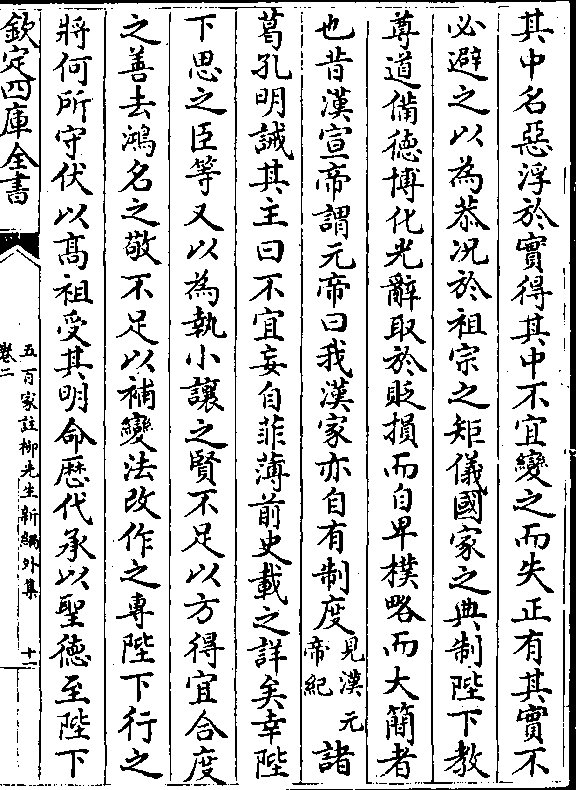 其中名惡浮於實得其中不宜變之而失正有其實不
必避之以為恭况於祖宗之矩儀國家之典制陛下教
尊道備德博化光辭取於貶損而自卑樸略而大簡者
也昔漢宣帝謂元帝曰我漢家亦自有制度見漢元帝紀諸
葛孔明誡其主曰不宜妄自菲薄前史載之詳矣幸陛
下思之臣等又以為執小讓之賢不足以方得宜合度
之善去鴻名之敬不足以補變法改作之專陛下行之
將何所守伏以髙祖受其明命歴代承以聖德至陛下
欽定四庫全書
五百家註柳先生新編外集
卷二
十一